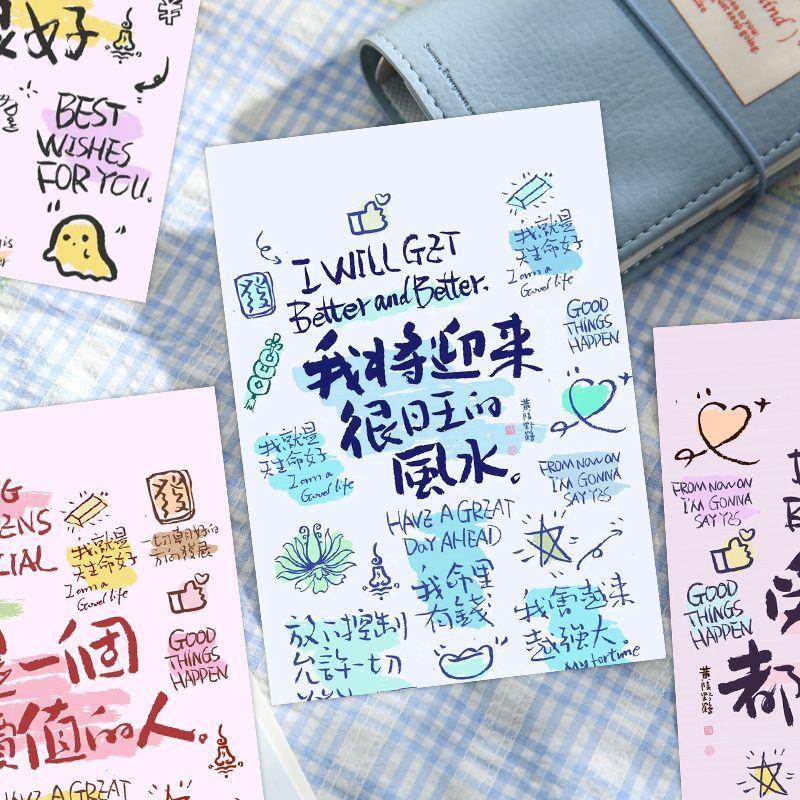 很好
BEST
WISHES
FOR YOU.
I WILL GET
Better and Better.
發
我將迎來
很旺的
風水。
我就是
天生命好
I am a
Good life
GOOD
THINGS
HAPPEN
我就是
天生命好
I am a
Good life
FROM NOW ON
I'M GONNA
SAY YES
HAVE A GREAT
DAY AHEAD
我命里
有錢
放下控制
允許一切
我會越來
越強大。
My fortune
發
我就是
天生命好
I am a
Good life
一切
GOOD
THINGS
HAPPEN
一個
價值的人。
HAVE A GREAT
FROM NOW ON
I'M GONNA
SAY YES
GOOD
THINGS
HAPPEN
都